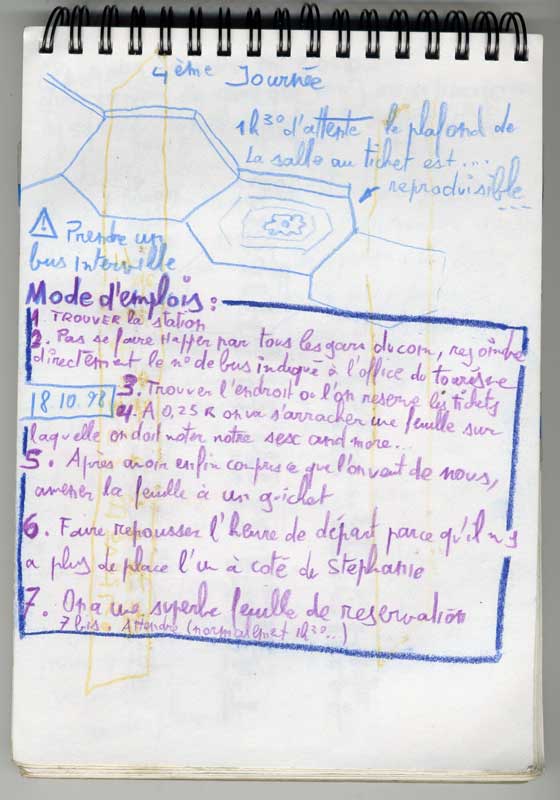 4ème Journée
1h30 d'attente le plafond de
la salle au ticket est...
reproduisible
---
⚠ Prendre un
bus interville
Mode d'emplois :
1. TROUVER la station
2. Pas se faire Happer par tous les gars du coin, rejoindre
directement le n° de bus indiqué à l'office du tourisme
18.10.98
3. Trouver l'endroit ou l'on reserve les tickets
4. A 0,25 R on va s'arracher une feuille sur
laquelle on doit noter notre sexe and more...
5. Après avoir enfin compris ce que l'on veut de nous,
amener la feuille à un guichet
6. Faire repousser l'heure de départ parce qu'il n'y
a plus de place l'un à coté de Stephanie
7. On a une superbe feuille de reservation
7 bis. Attendre (normalement 1h30..)